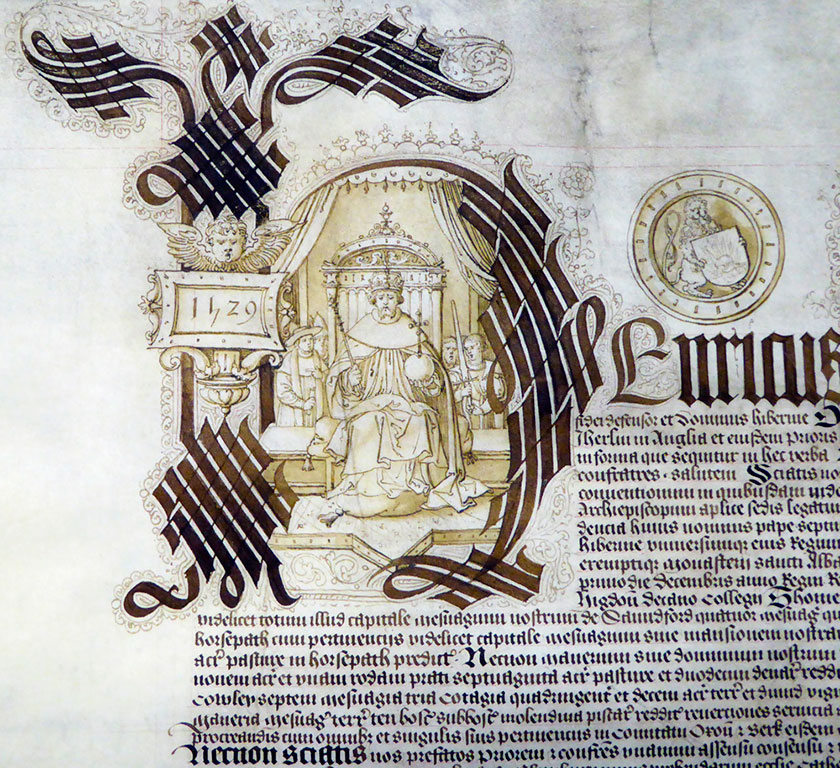 1529
Henricus
fidei defensor et Dominus hibernie
in Anglia et eiusdem Prioris
in forma que sequitur in hec verba
confratres salutem Sciatis nos
conventionum in quibusdam inde
Archiepiscopum aplice sedis legatu
dencia huius nominis pape septi
hibernie universimqz eius Regium
exemptiqz monasterii sancti Alba
primo die Decembris anno Regni R
higdon decano Collegii Thome
videlicet totum illud capitale mesuagium nostrum de Saundford quatuor mesuag
horsepath cum pertinenciis videlicet capitale mesuagium sive mansionem nostra
acr pasture in horsepath predict Necnon manerium sive dominium nostrum
novem acr et unam rodam prati septuaginta acr pasture et duodecim denar redd
Cowley septem mesuagia tria Cotagia quadringent et decem acr terr et dimid
maneria mesuag terr ten bosc subbosc molendina piscar reddit reverciones servicia
procreandis cum omnibz et singulis suis pertinenciis in Comitatu Oxon & Berk eisdem
Necnon sciatis nos prefatos Priorem & confres unanimi assensu consensu &